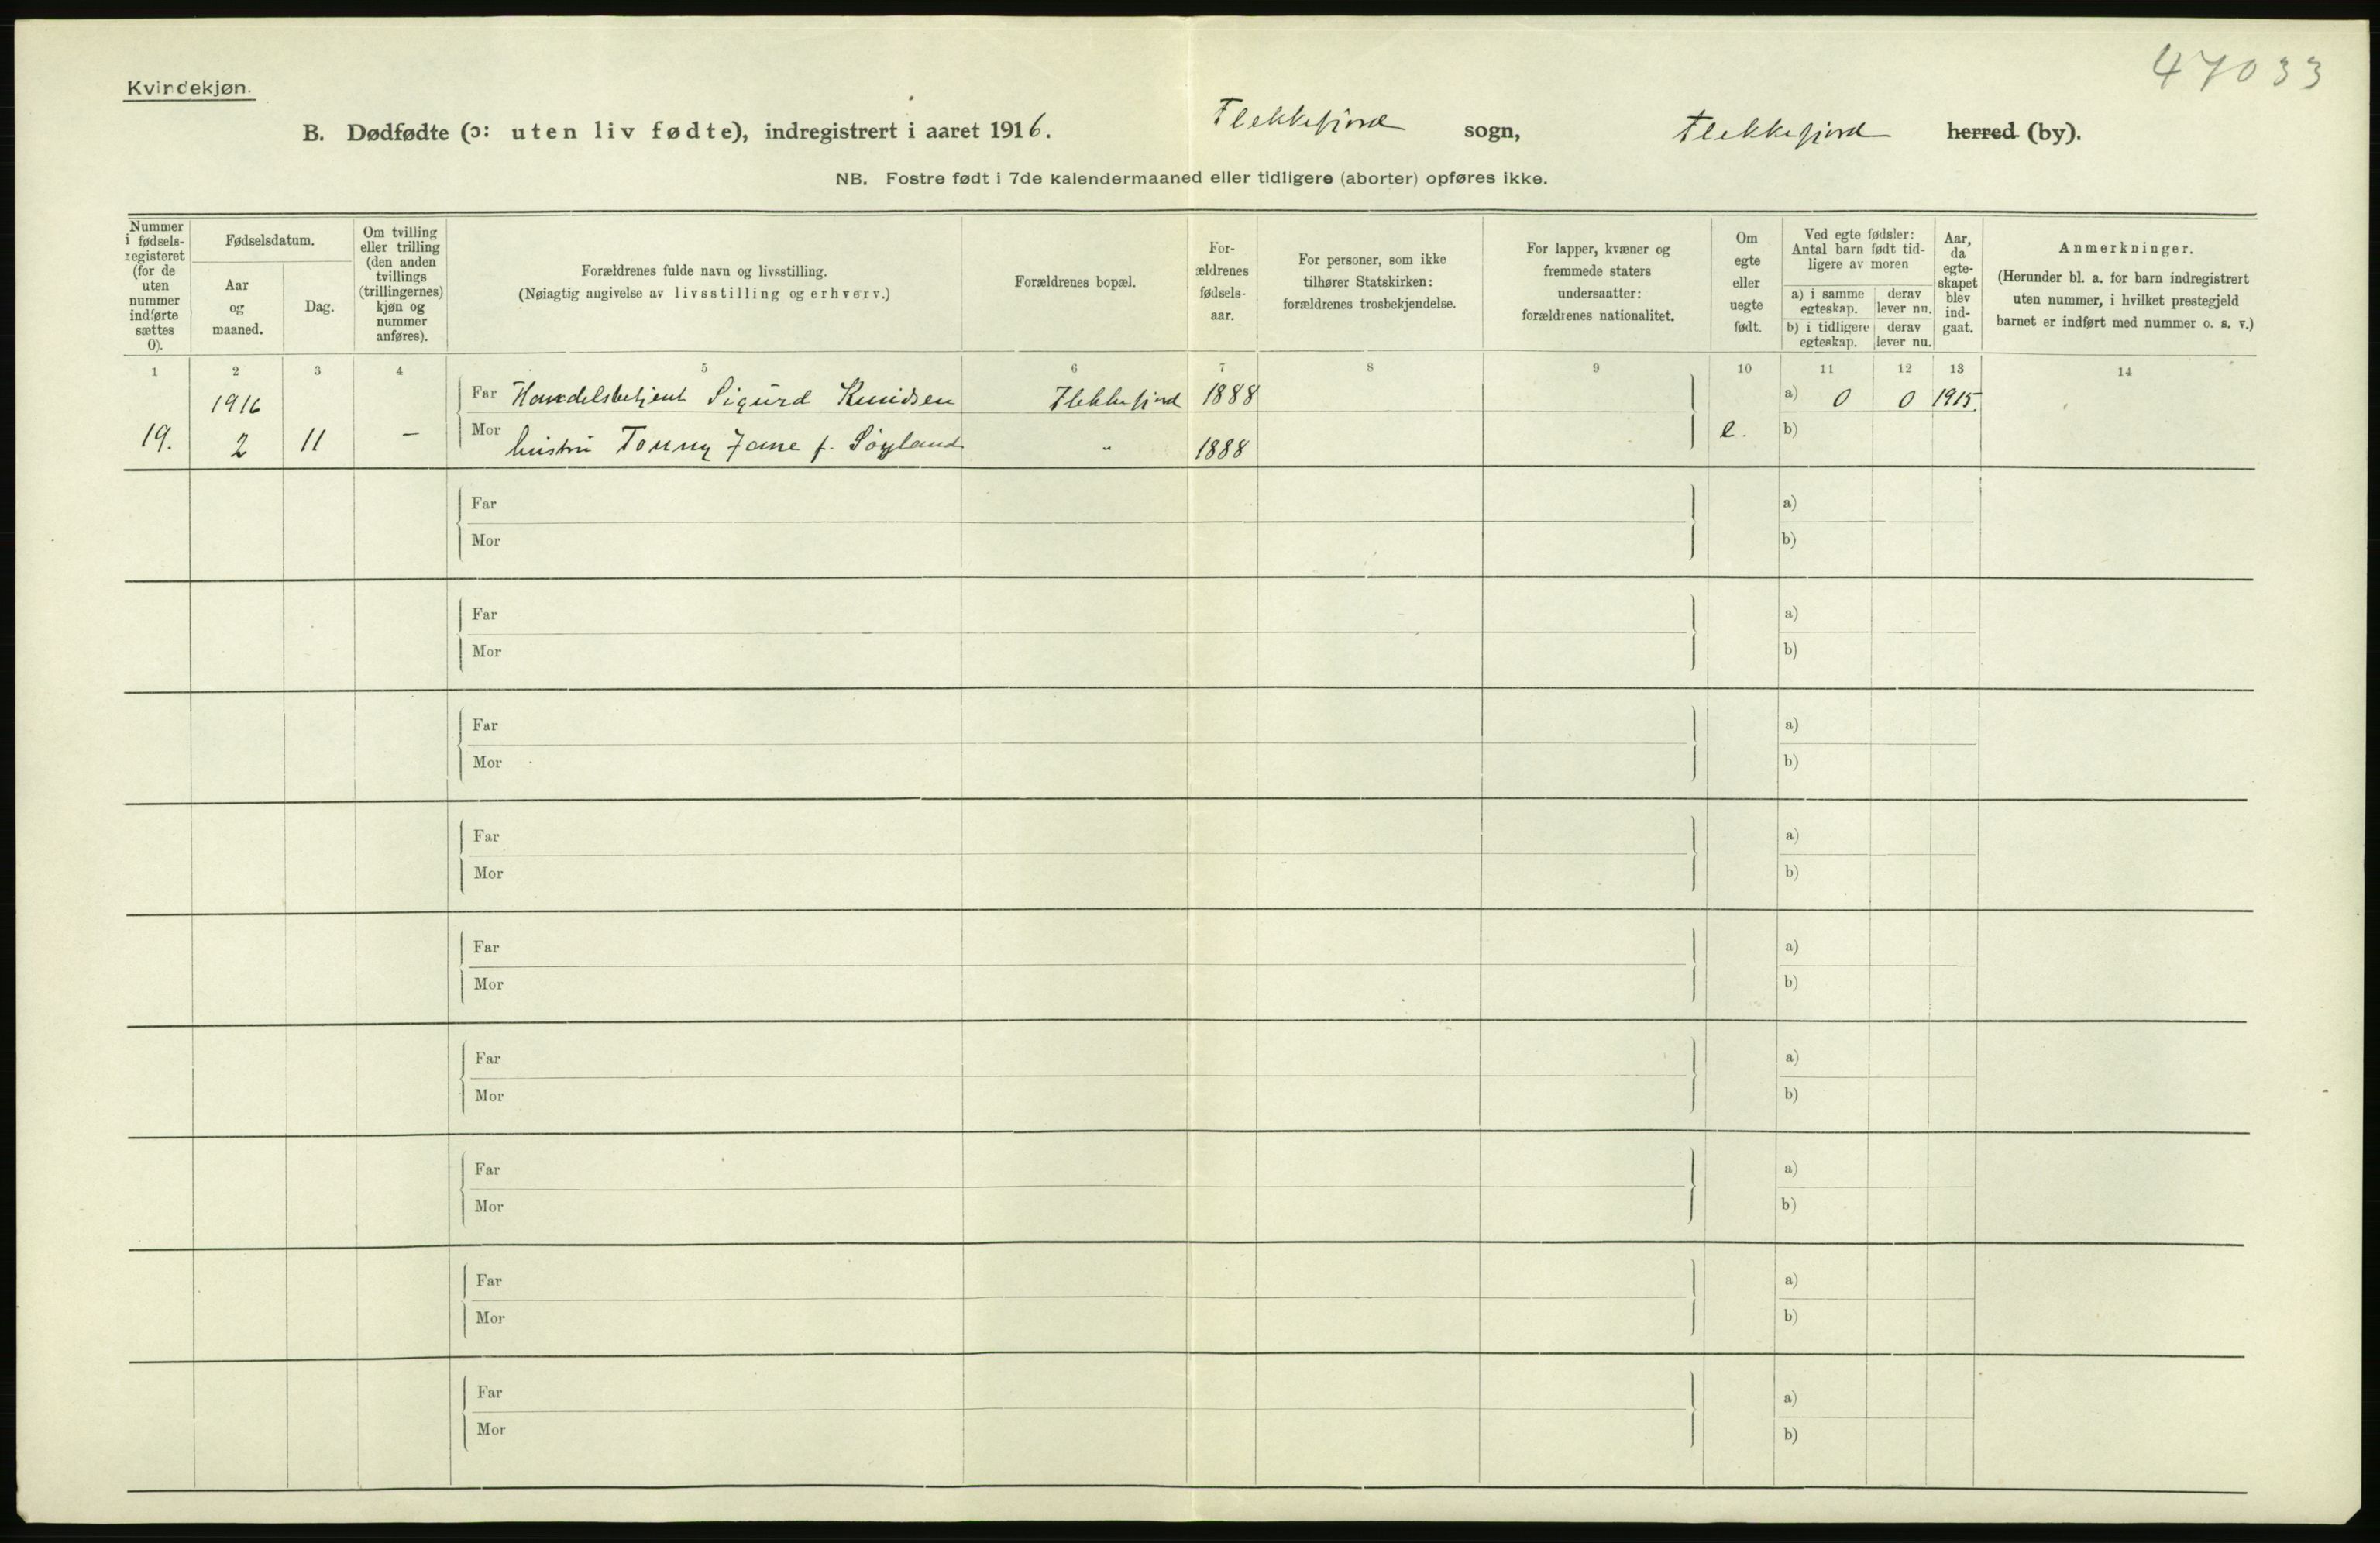 47033
Kvindekjøn.
B. Dødfødte (ɔ: uten liv fødte), indregistrert i aaret 1916. Flekkefjord sogn, Flekkefjord herred (by).
NB. Fostre født i 7de kalendermaaned eller tidligere (aborter) opføres ikke.
Nummer i fødsels-registeret (for de uten nummer indførte sættes 0).
Fødselsdatum.
Aar og maaned.
Dag.
Om tvilling eller trilling (den anden tvillings (trillingernes) kjøn og nummer anføres).
Forældrenes fulde navn og livsstilling.
(Nøiagtig angivelse av livsstilling og erhverv.)
Forældrenes bopæl.
For-ældrenes fødsels-aar.
For personer, som ikke tilhører Statskirken: forældrenes trosbekjendelse.
For lapper, kvæner og fremmede staters undersaatter: forældrenes nationalitet.
Om egte eller uegte født.
Ved egte fødsler: Antal barn født tid-ligere av moren
a) i samme egteskap.
derav lever nu.
b) i tidligere egteskap.
derav lever nu.
Aar, da egte-skapet blev ind-gaat.
Anmerkninger.
(Herunder bl. a. for barn indregistrert uten nummer, i hvilket prestegjeld barnet er indført med nummer o. s. v.)
1 2 3 4 5 6 7 8 9 10 11 12 13 14
1916 Far Handelsbetjent Sigurd Knudsen Flekkefjord 1888 a) 0 0 1915.
19. 2 11 – Mor hustru Tonny Jane f. Søyland " 1888 e. b)
Far a)
Mor b)
Far a)
Mor b)
Far a)
Mor b)
Far a)
Mor b)
Far a)
Mor b)
Far a)
Mor b)
Far a)
Mor b)
Far a)
Mor b)
Far a)
Mor b)